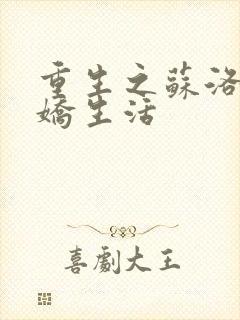 重生之蘇洛
嬌生活
喜劇大王